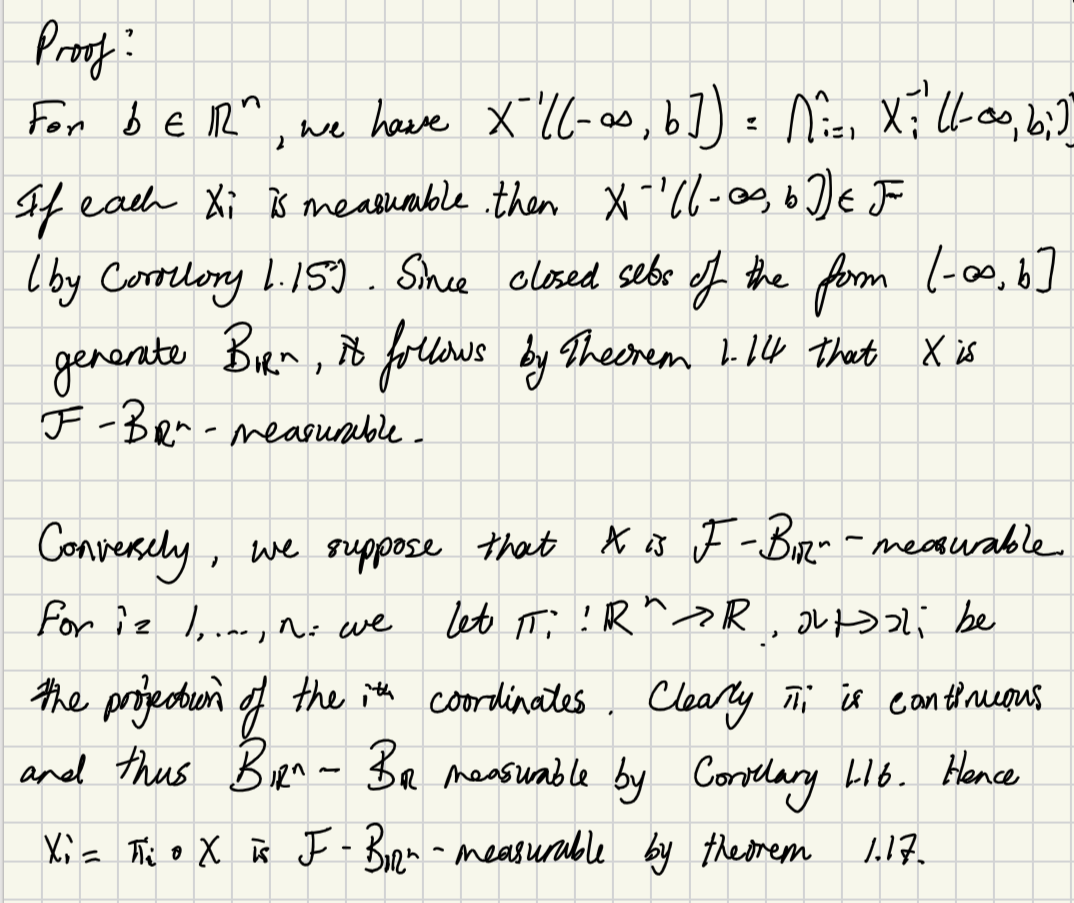 Proof:
For b ∈ ℝⁿ, we have X⁻¹((-∞, b]) = ∩ⁿᵢ₌₁ Xᵢ⁻¹((-∞, bᵢ])
If each Xᵢ is measurable then X⁻¹((-∞, b]) ∈ F
(by Corollory 1.15). Since closed sets of the form (-∞, b]
generate B_ℝⁿ, it follows by Theorem 1.14 that X is
F-B_ℝⁿ-measurable.
Conversely, we suppose that X is F-B_ℝⁿ-measurable.
For i = 1,...,n: we let πᵢ : ℝⁿ → ℝ, x ↦ xᵢ be
the projection of the iᵗʰ coordinates. Clearly πᵢ is continuous
and thus B_ℝⁿ - B_ℝ measurable by Corollary 1.16. Hence
Xᵢ = πᵢ ∘ X is F-B_ℝⁿ-measurable by theorem 1.17.